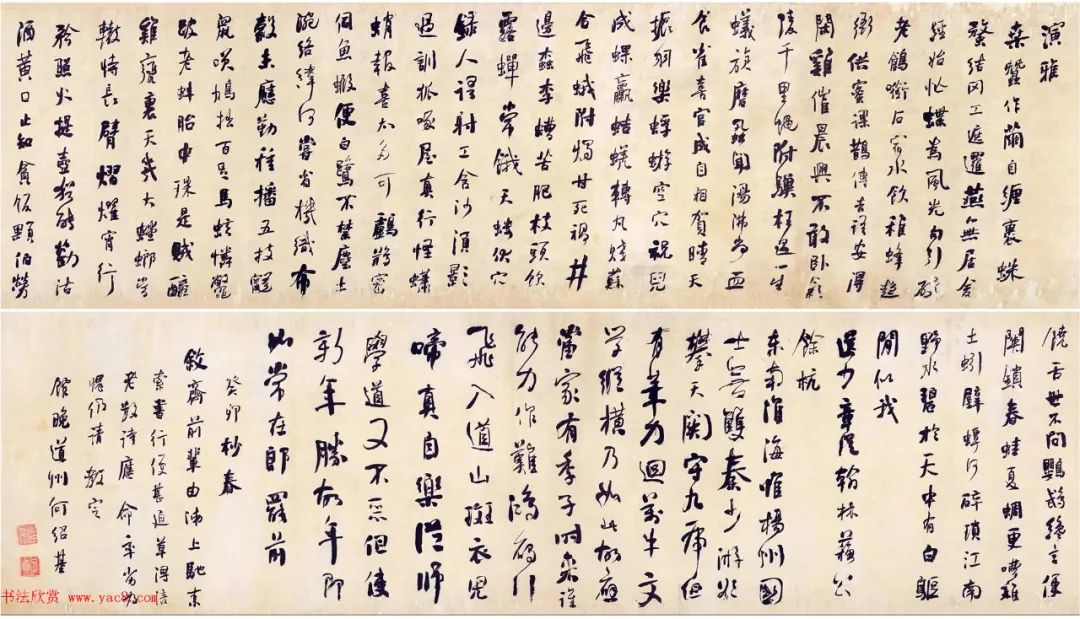 演雅
桑蠶作繭自纏裹蛛
蝥結网工遮邏燕無居舍
經始忙蝶為風光勾引破
老鶬銜石宿水飲稚蜂趨
衙供蜜課鵲傳吉語安得
閑雞催晨興不敢臥氣
陵千里蠅附驥枉過一生
蟻旋磨蝨聞湯沸尚血
食雀喜宮成自相賀晴天
振羽樂蜉蝣空穴祝兒
成蜾蠃蛣蜣轉丸賤蘇
合飛蛾附燭甘死禍井
邊蠹李螬苦肥枝頭飲
露蟬常餓天螻伏穴
錄人語射工含沙須影
過訓狐啄屋真行怪蠨
蛸報喜太多可鸕鶿密
伺魚蝦便白鷺不禁塵土
涴絡緯何嘗省機織布
穀未應勤種播五技鼫
鼠笑鳩拙百足馬蚿憐鱉
跛老蚌胎中珠是賊醯
雞甕裏天幾大螳螂當
轍恃長臂熠燿宵行
矜照火提壺猶能勸沽
酒黃口止知貪飯顆伯勞
饒舌世不問鸚鵡纔言便
關鎖春蛙夏蜩更嘈雜
土蚓壁蟫何碎瑣江南
野水碧於天中有白鷗
閒似我
送少章從翰林蘇公
餘杭
東南淮海惟楊州國
士無雙秦少游欲
攀天關守九虎但
有筆力迴萬牛文
學縱橫乃如此故應
當家有季子時來誰
能力作難鴻雁行
飛入道山斑衣兒
啼真自樂從師
學道又不惡但使
新年勝故年即
如常在郎罷前
癸卯杪春
敘齋前輩由沛上馳柬
索書行促甚道草浔涪
老數詩應命弟當為
愧仍請教定
館晚道州何紹基
书法欣赏 www.yac8.com